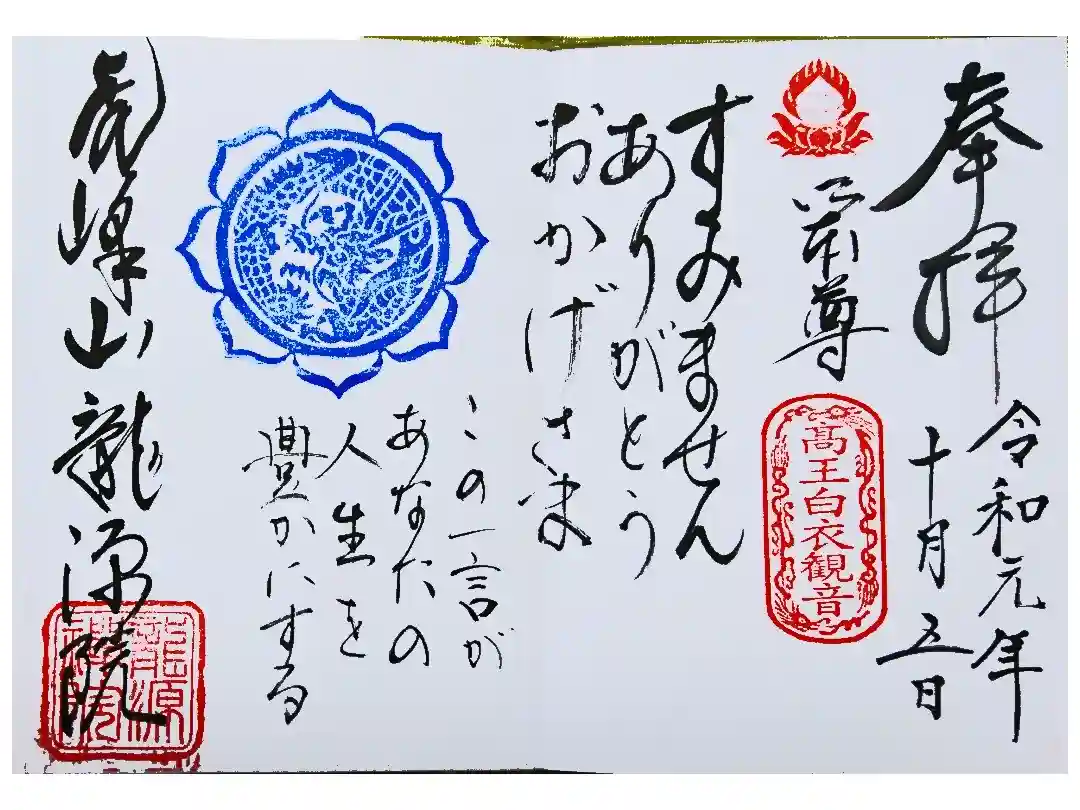 奉拝
令和元年
十月五日
本尊
高王白衣観音
すみません
ありがとう
おかげさま
この一言が
あなたの
人生を
豊かにする
虎峰山龍源院
龍源
禅院